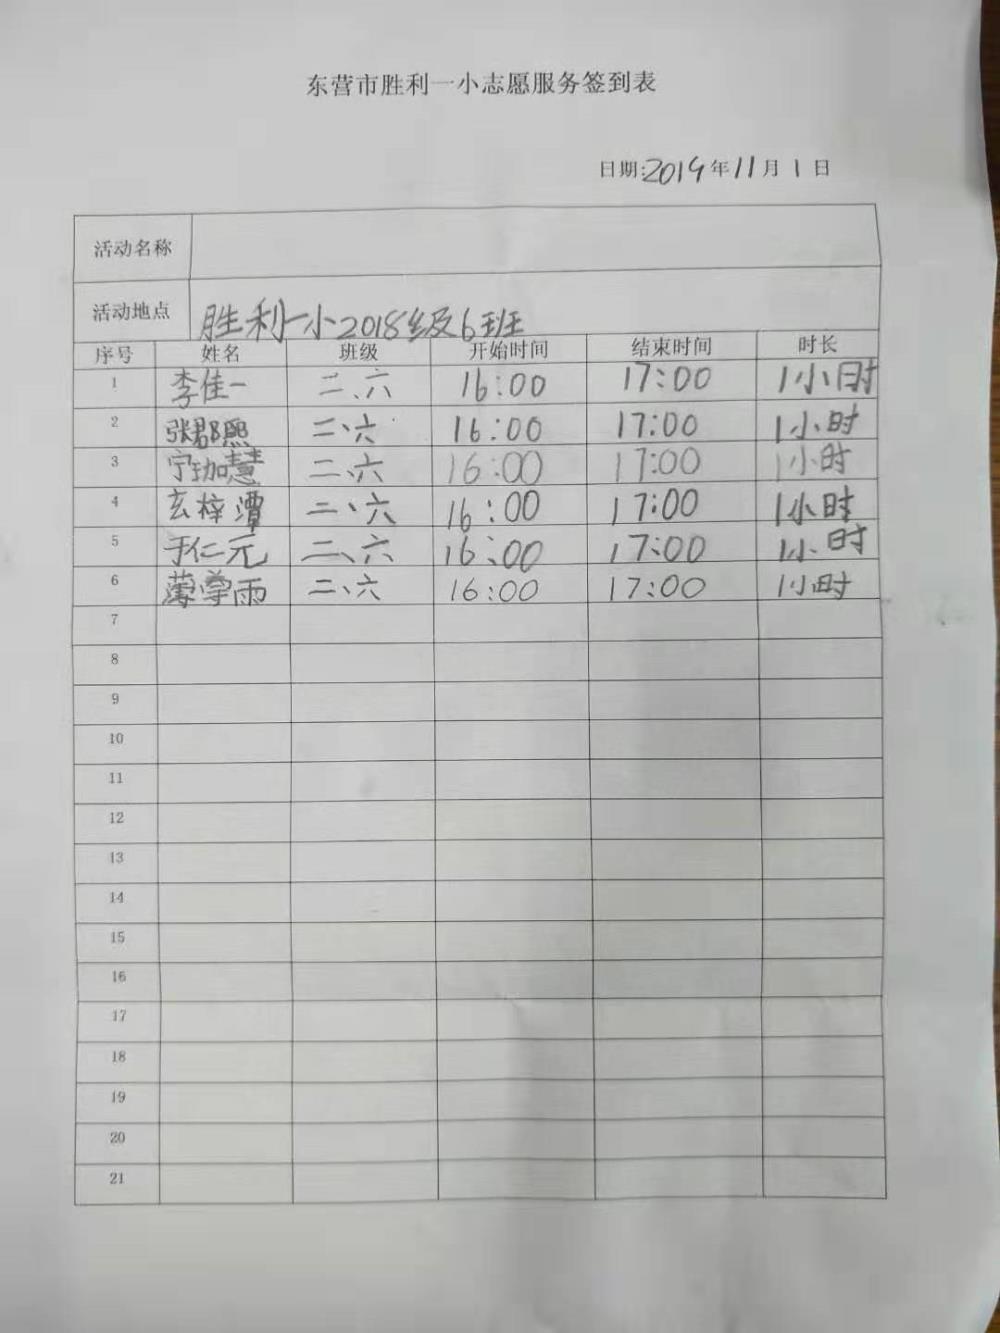 东营市胜利一小志愿服务签到表
日期:2019年11月1日
活动名称
活动地点 胜利一小2018级6班
序号 姓名 班级 开始时间 结束时间 时长
1 李佳一 二、六 16:00 17:00 1小时
2 张郡熙 二、六 16:00 17:00 1小时
3 宁珈慧 二、六 16:00 17:00 1小时
4 玄梓潭 二、六 16:00 17:00 1小时
5 于仁元 二、六 16:00 17:00 1小时
6 雨 二、六 16:00 17:00 1小时
7
8
9
10
11
12
13
14
15
16
17
18
19
20
21